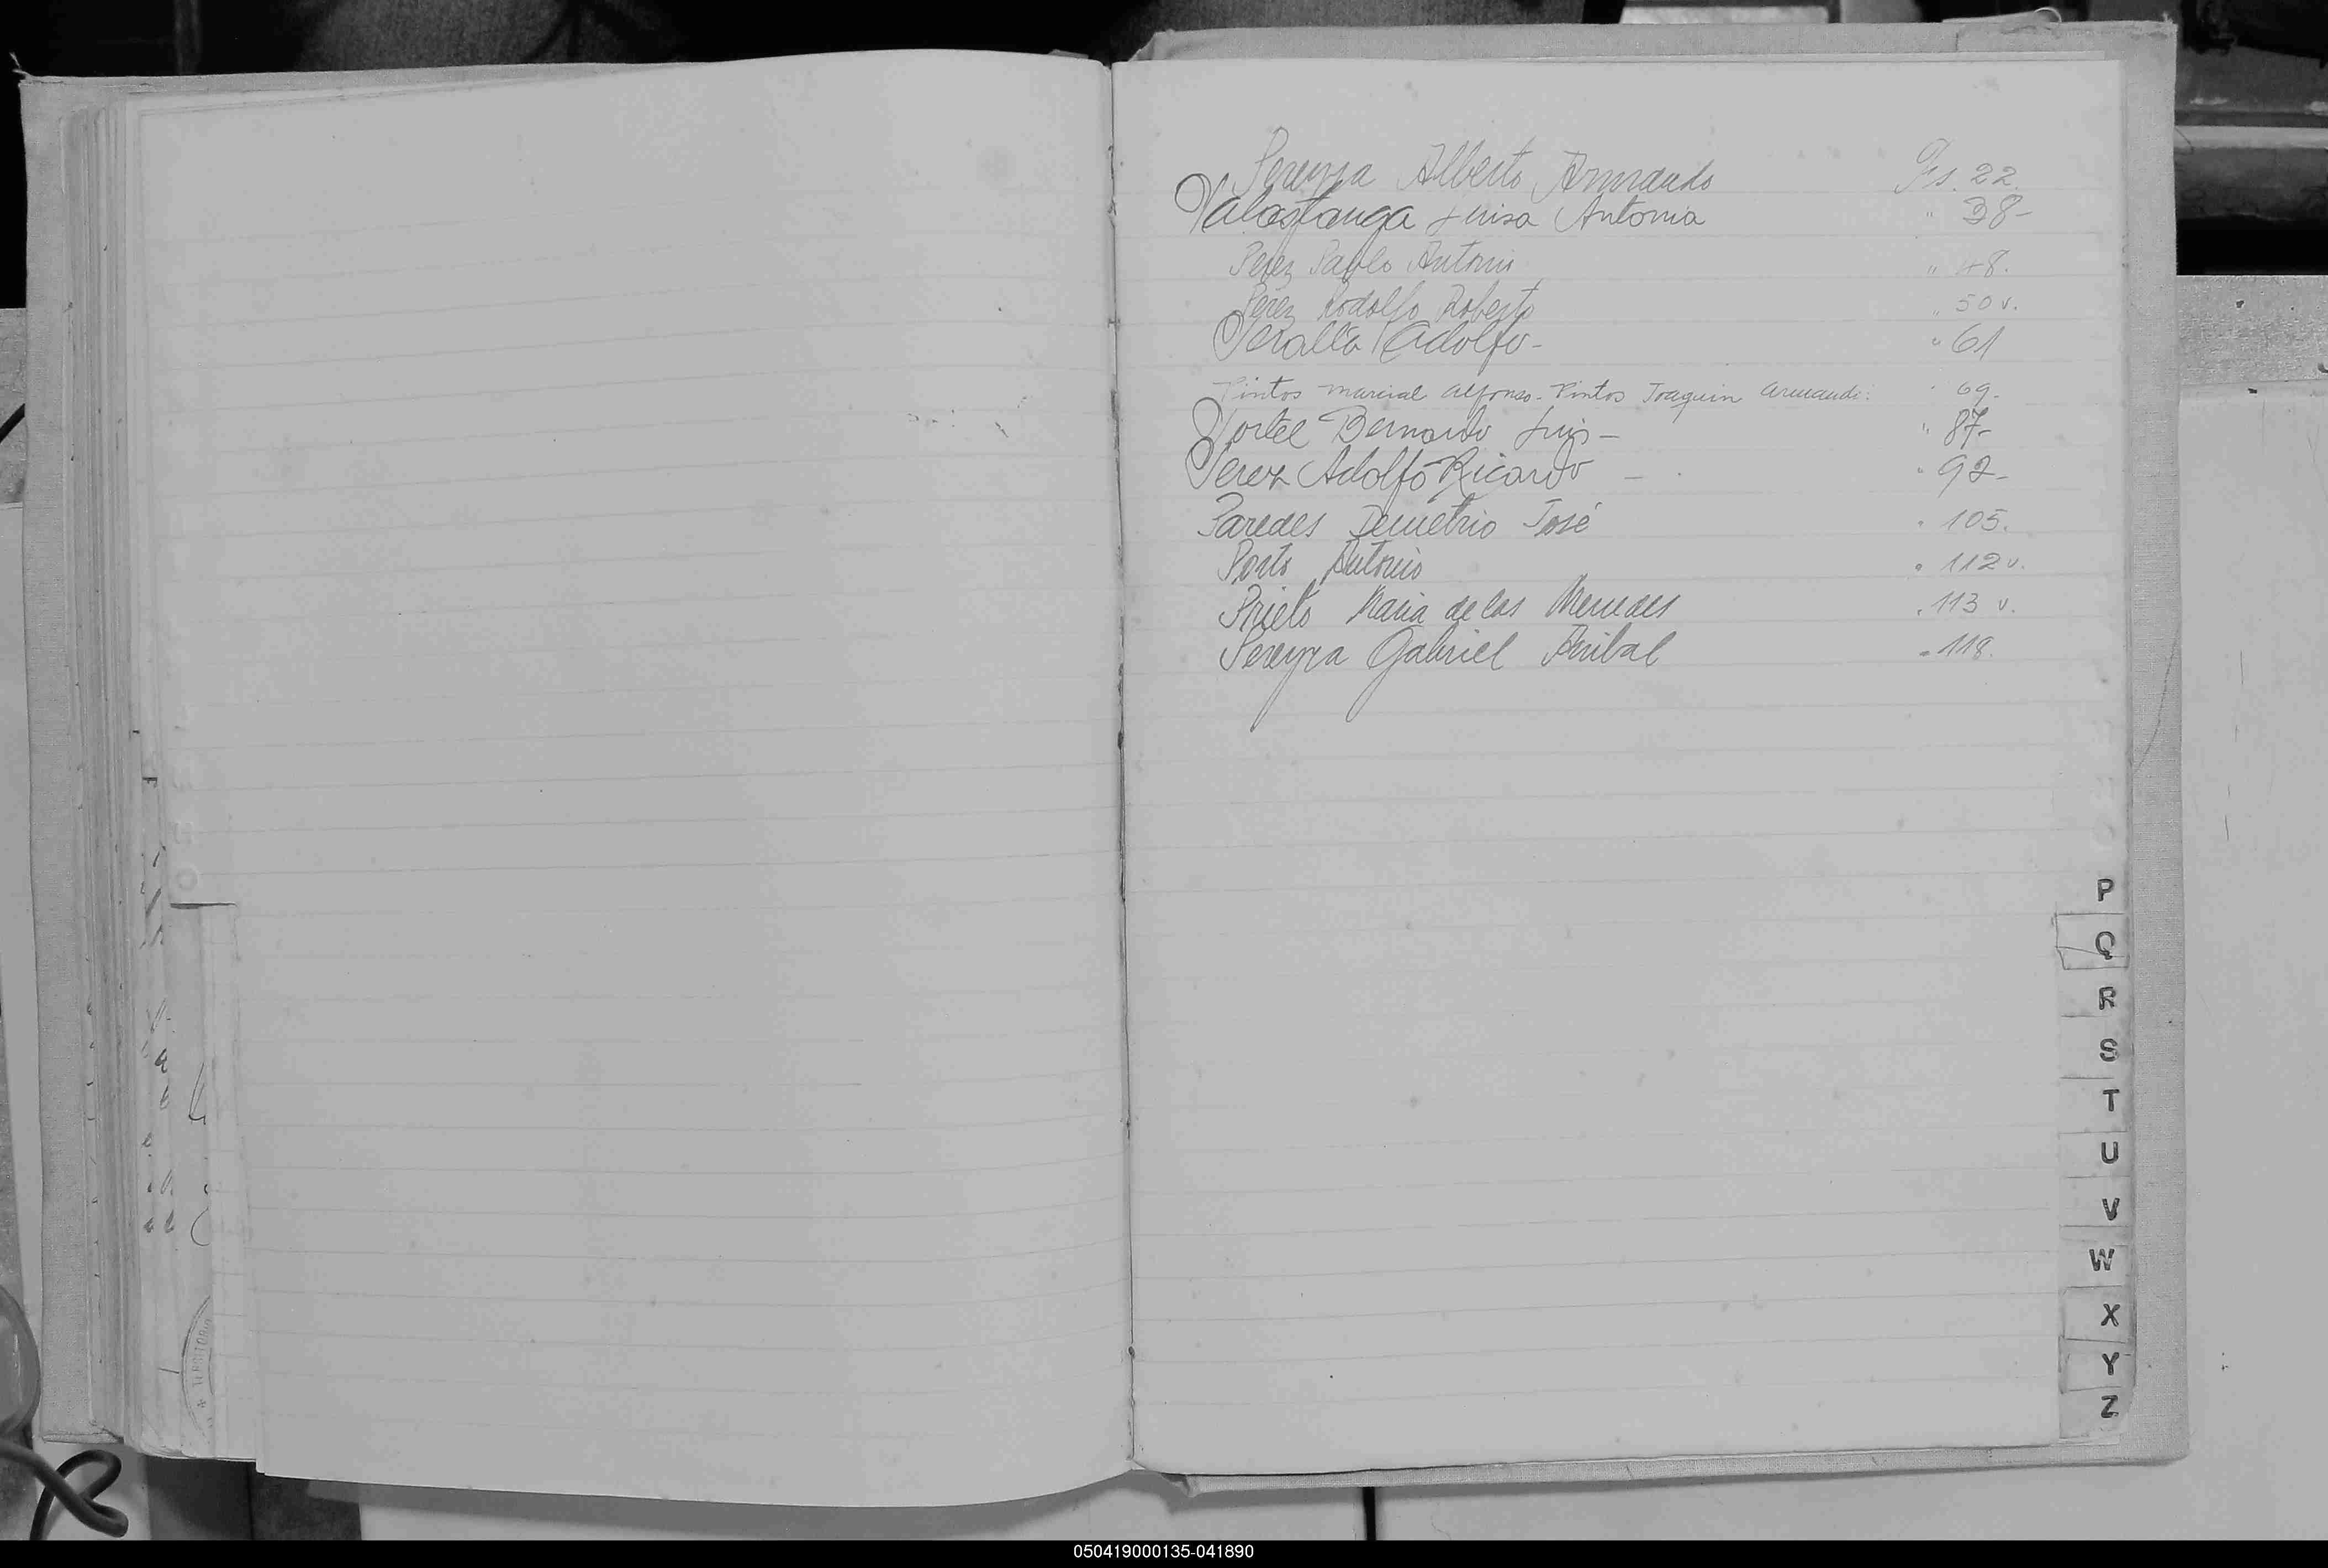 Pereyra Alberto Armando Fs. 22.
Palastanga Luisa Antonia " 38-
Perez Pablo Antonio " 48.
Perez Rodolfo Roberto " 50 v.
Peralta Adolfo- " 61
Pintos Marcial Alfonso- Pintos Joaquin Armando: " 69.
Portel Bernardo Luis- " 87-
Perez Adolfo Ricardo - " 92-
Paredes Demetrio José " 105.
Porto Antonio " 112 v.
Prieto Maria de las Mercedes " 113 v.
Pereyra Gabriel Anibal " 118.
P
Q
R
S
T
U
V
W
X
Y
Z
050419000135-041890